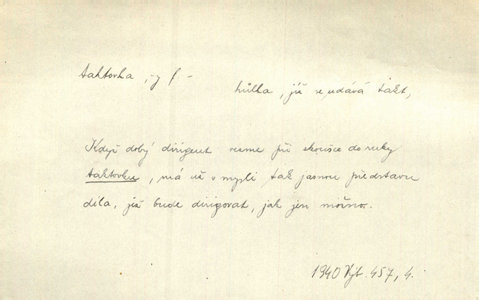 taktovka, -y f. -
hůlka, jíž se udává takt,
Když dobrý dirigent vezme při zkoušce do ruky
taktovku, má už v mysli tak jasnou představu
díla, jež bude dirigovat, jak jen možno.
1940 Vyt. 457, 4.